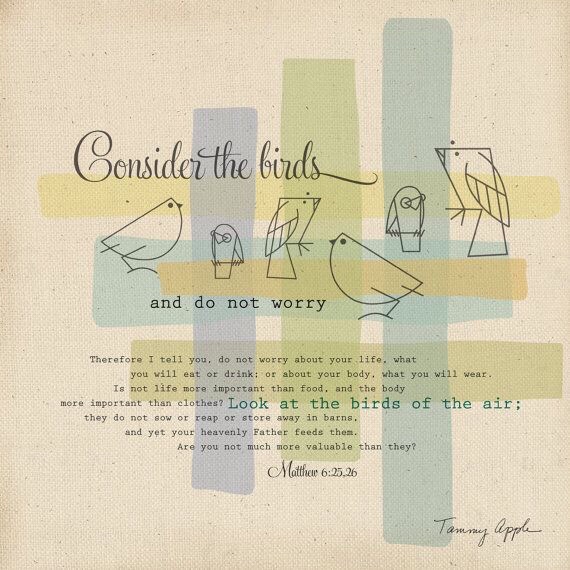 Consider the birds
and do not worry
Therefore I tell you, do not worry about your life, what
you will eat or drink; or about your body, what you will wear.
Is not life more important than food, and the body
more important than clothes? Look at the birds of the air;
they do not sow or reap or store away in barns,
and yet your heavenly Father feeds them.
Are you not much more valuable than they?
Matthew 6:25,26
Tammy Apple